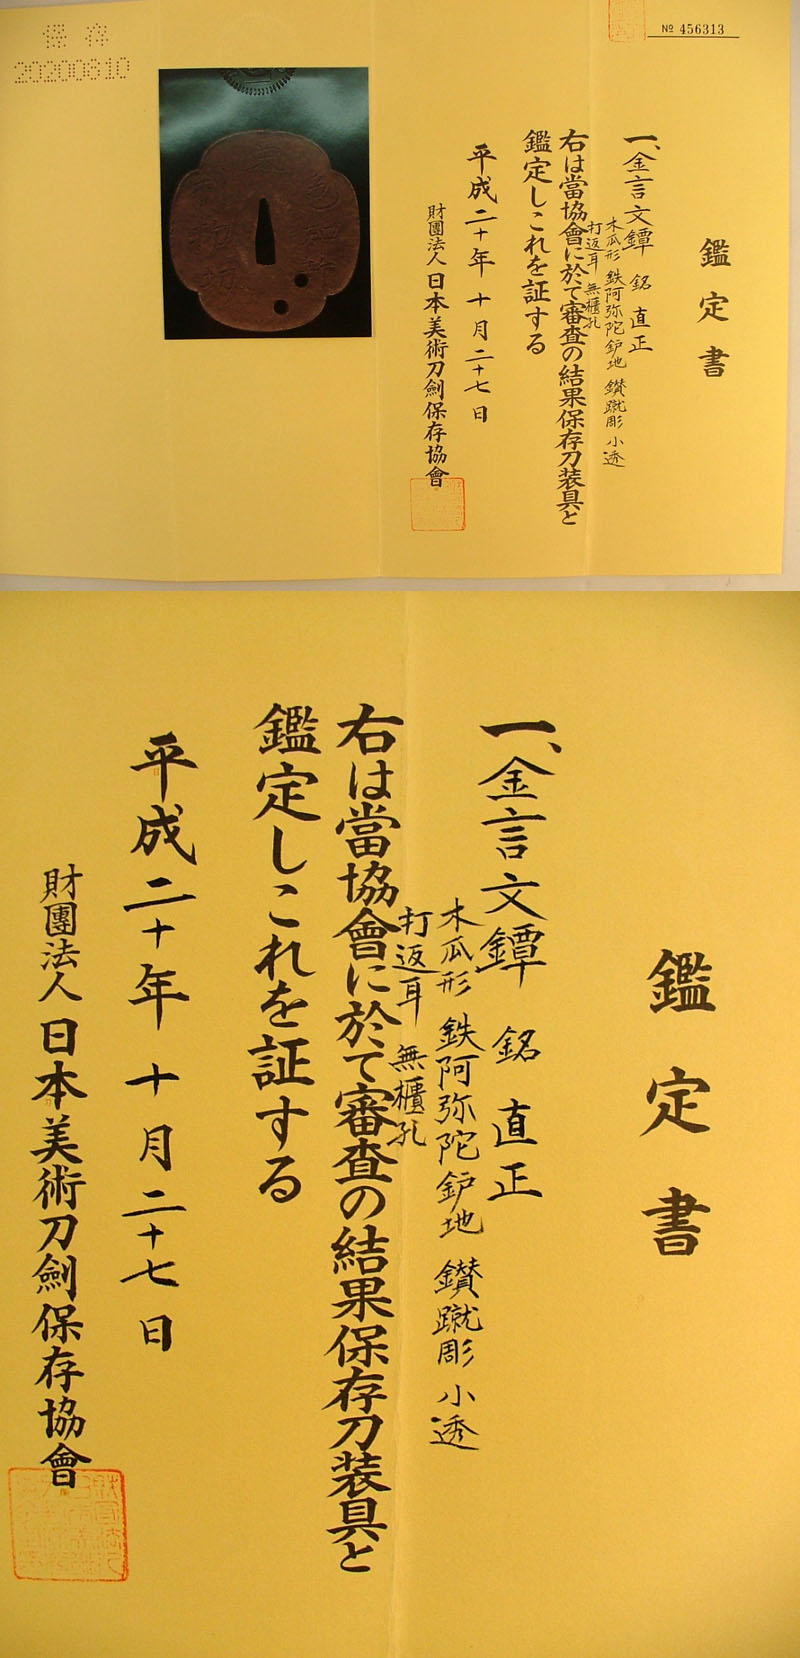 保存
20200610
№ 456313
鑑定書
一、金言文鐔 銘 直正
木瓜形 鉄阿弥陀鈩地 鑚蹴彫 小透
打返耳 無櫃孔
右は當協會に於て審査の結果保存刀装具と
鑑定しこれを証する
平成二十年 十月二十七日
財團法人 日本美術刀劍保存協會
鑑定書
一、金言文鐔 銘 直正
木瓜形 鉄阿弥陀鈩地 鑚蹴彫 小透
打返耳 無櫃孔
右は當協會に於て審査の結果保存刀装具と
鑑定しこれを証する
平成二十年 十月二十七日
財團法人 日本美術刀劍保存協會